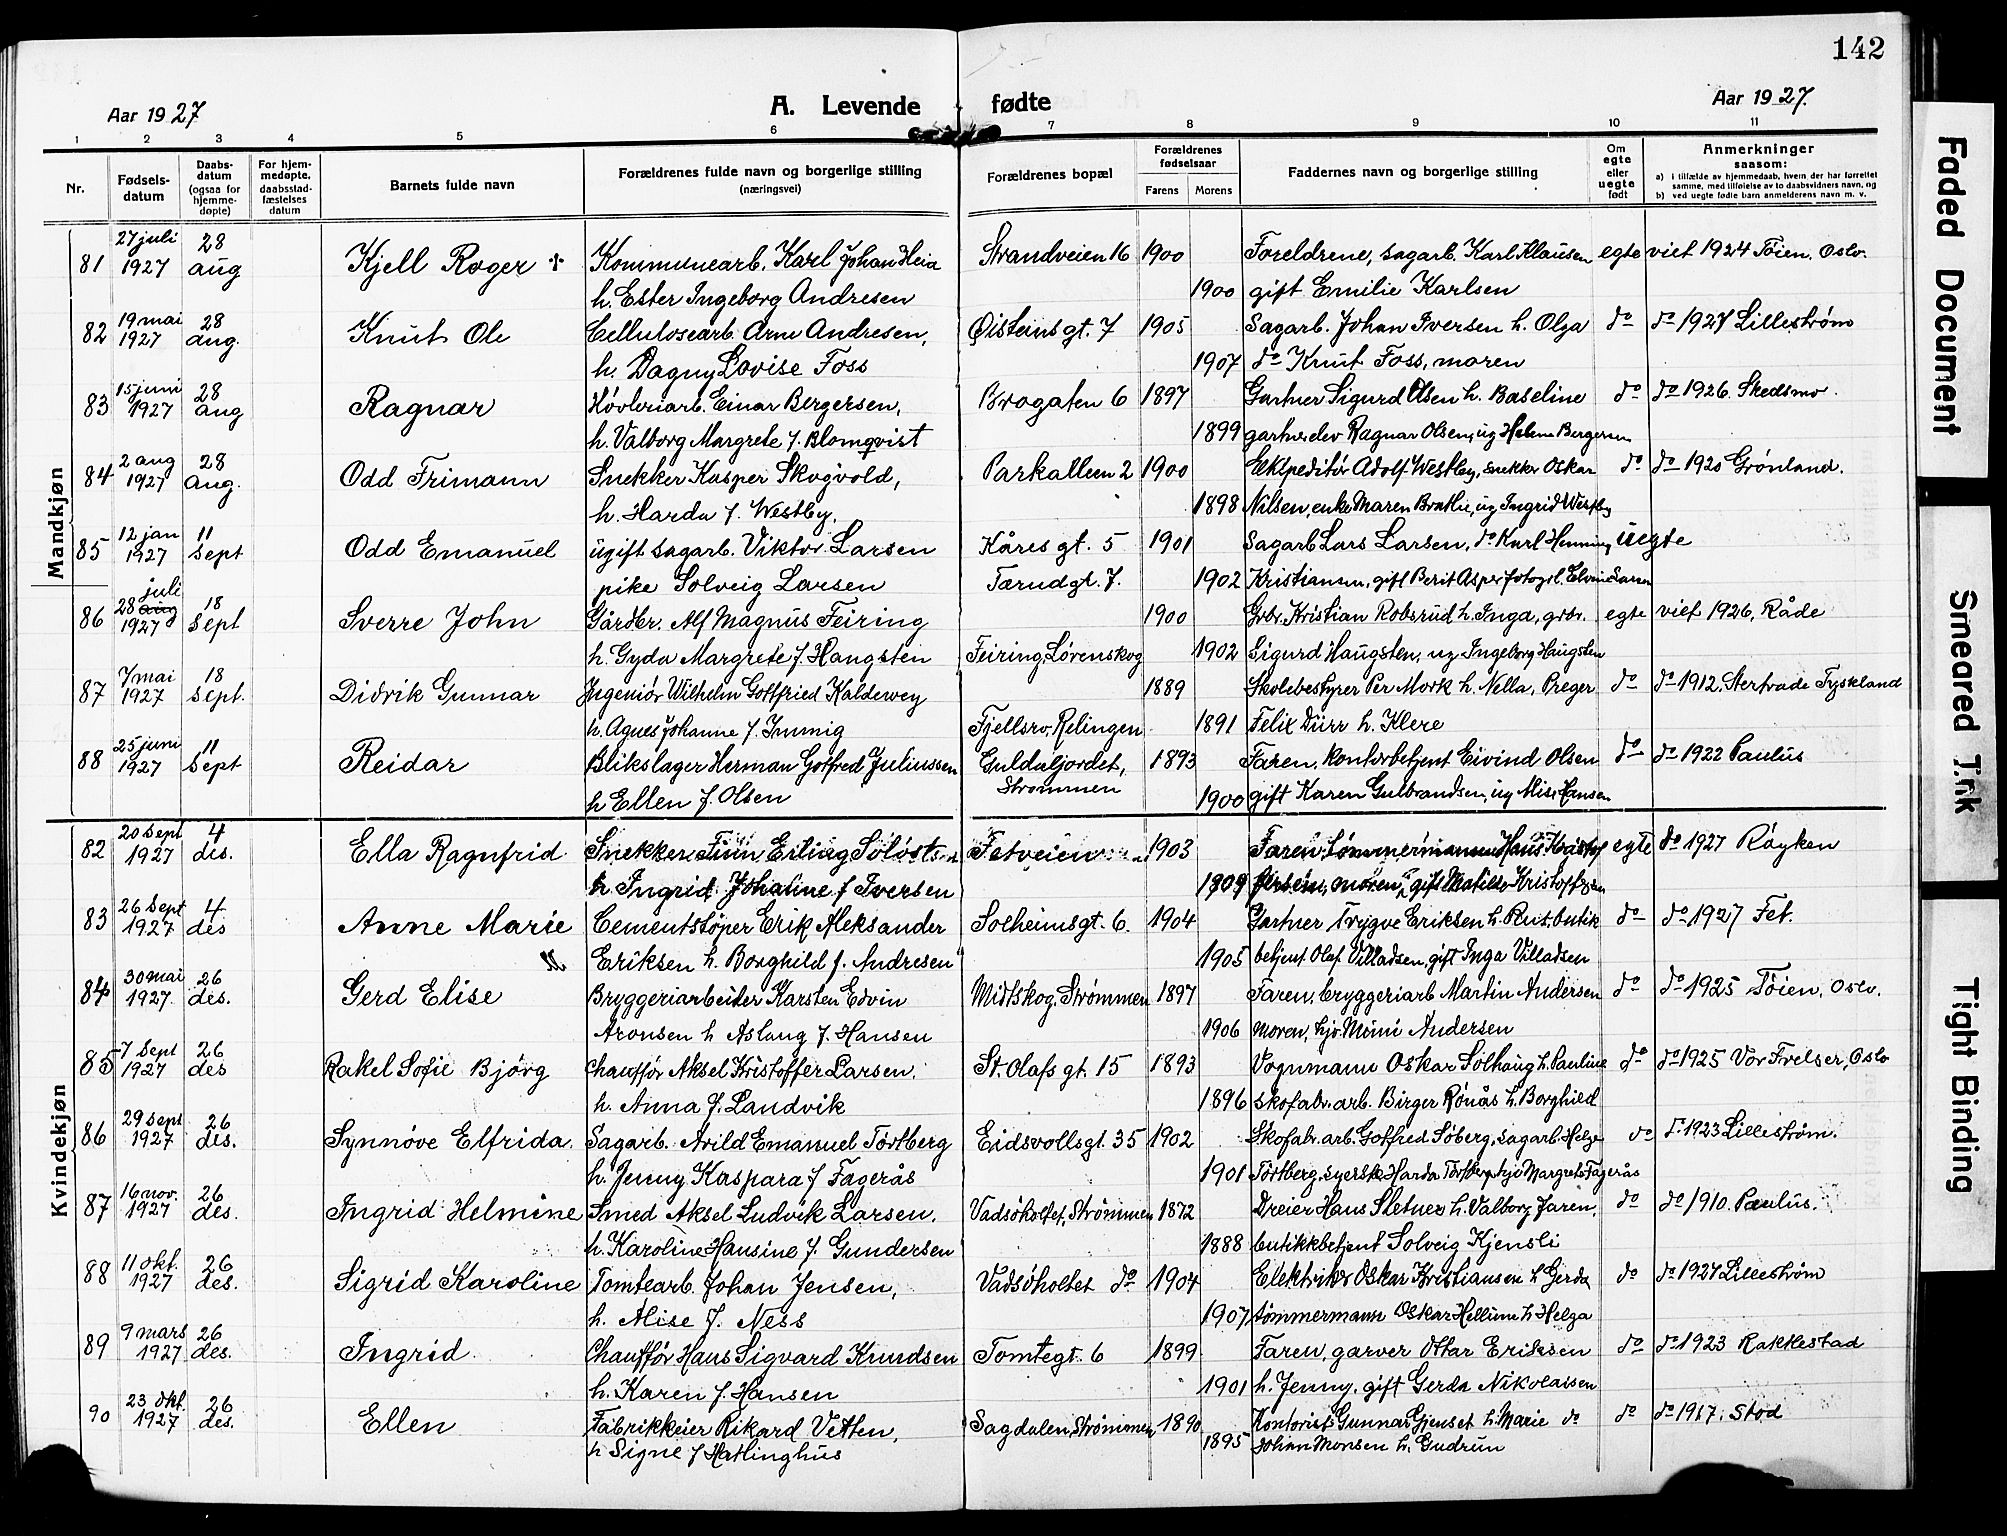 142
Aar 1927
A. Levende fødte
Aar 1927.
1 2 3 4 5 6 7 8 9 10 11
Nr.
Fødsels-datum
Daabs-datum (ogsaa for hjemme-døpte)
For hjem-medøpte. daabsstad-fæstelses datum
Barnets fulde navn
Forældrenes fulde navn og borgerlige stilling (næringsvei)
Forældrenes bopæl
Forældrenes fødselsaar
Farens
Morens
Faddernes navn og borgerlige stilling
Om egte eller uegte født
Anmerkninger
saasom:
a) i tilfælde av hjemmedaab, hvem der har forrettet samme, med tilføielse av to daabsvidners navn, og
b) ved uegte fødte barn anmelderens navn m. v.
Mandkjøn
81 27 juli 1927 28 aug Kjell Roger + Kommunearb. Karl Johan Heia Strandveien 16 1900 Foreldrene, sagarb. Karl Klausen egte viet 1924 Tøien. Oslo.
h. Ester Ingeborg Andresen 1900 gift Emilie Karlsen
82 19 mai 1927 28 aug. Knut Ole Cellulosearb. Arne Andresen, Øisteinsgt. 7 1905 Sagarb. Johan Iversen h. Olga do do 1927 Lillestrøm
h. Dagny Lovise Foss 1907 do Knut Foss, moren
83 15 juni 1927 28 aug Ragnar Høvleriarb. Einar Bergersen, Brogaten 6 1897 Gartner Sigurd Olsen h. Baseline do do 1926. Skedsmo.
h. Valborg Margrete f. Blomqvist 1899 gartnerelev Ragnar Olsen, ug Helene Bergersen
84 2 aug 1927 28 Aug. Odd Frimann Snekker Kasper Skogvold, Parkalleen 2 1900 Ekspeditør Adolf Westby, snekker Oskar do do 1920 Grønland.
h. Harda f. Westby. 1898 Nilsen, enke Maren Brathe, ug Ingrid Westby
85 12 jan 1927 11 Sept Odd Emanuel ugift sagarb. Viktor Larsen Kåresgt. 5 1901 Sagarb Lars Larsen, do Karl Henning uegte
pike Solveig Larsen Tærudgt. 7. 1902 Kristiansen, gift Berit Asper fotogr. Larsen
86 28 juli aug 1927 18 Sept Sverre John Gårdbr. Alf Magnus Feiring 1900 Grbr. Kristian Robsrud h. Inga, grbr. egte viet 1926, Råde
h. Gyda Margrete f. Haugsten Feiring, Lørenskog 1902 Sigurd Haugsten, ug Ingeborg Haugsten
87 7 mai 1927 18 Sept. Didrik Gunnar Ingeniør Wilhelm Gottfried Kaldewey 1889 Skolebestyrer Per Mork h. Nella, Preger do do 1912. Sterkrade Tyskland
h. Agnes Johanne f. Immig Fjellsrv, Relingen 1891 Felix Dürr h. Klere
88 25 juni 1927 11 Sept Reidar Blikslager Herman Gotfred Juliussen Guldaljordet, 1893 Faren, kontorbetjent Eivind Olsen do do 1922 Paulus
h Ellen f. Olsen Strømmen 1900 gift Karen Gulbrandsen, ug Hansen
Kvindekjøn
82 20 Sept 1927 4 des. Ella Ragnfrid Snekker Finn Erling Fetveien 1903 Faren, tømmermann Hans egte do 1927 Røyken
h Ingrid Johanne f Iversen 1909 moren, gift Matilde Kristoffersen
83 26 Sept 1927 4 des Anne Marie Cementstøper Erik Aleksander Solheimsgt. 6. 1904 Gartner Trygve Eriksen h. Rut, butik do do 1927 Fet.
Eriksen h. Borghild f. Andresen 1905 betjent Olaf Villadsen, gift Inga Villadsen
84 30 mai 1927. 26 des. Gerd Elise Bryggeriarbeider Karsten Edvin Midtskog, Strømmen 1897 Faren, bryggeriarb Martin Andersen do do 1925 Tøien, Oslo.
Aronsen h Aslaug f. Hansen 1906 moren, hjv. Mimi Andersen
85 7 Sept 1927 26 des Rakel Sofie Bjørg Chauffør Aksel Kristoffer Larsen. St. Olafs gt. 15 1893 Vognmann Oskar Solhaug h. Pauline do do 1925 Vor Frelser, Oslo
h. Anna f. Landvik 1896 skofabr. arb. Birger Rønås h. Borghild
86 29 Sept 1927 26 des. Synnøve Elfrida. Sagarb. Arild Emanuel Tortberg Eidsvollsgt. 35 1902 Skofabr. arb. Gotfred Søberg, sagarb. Helge do do 1923 Lillestrøm.
h. Jenny Kaspara f Fagerås 1901 Tortberg, syerske Harda Tortberg, hjv Margrete Fagerås
87 16 nov. 1927 26 des. Ingrid Helmine Smed Aksel Ludvik Larsen. Vadsøholtet, Strømmen 1872 Dreier Hans Sletner h. Valborg Faren, do do 1910. Paulus.
h. Karoline Hansine f. Gundersen 1888 butikkbetjent Solveig Kjensli
88 11 okt. 1927 26 des. Sigrid Karoline Tomtearb. Johan Jensen, Vadsøholtet do 1904 Elektriker Oskar Kristiansen h Gerda do do 1927 Lillestrøm
h. Alise f. Ness 1907 tømmermann Oskar Hellum h Helga
89 9 mars 1927 26 des. Ingrid Chauffør Hans Sigvard Knudsen Tomtegt. 6 1899 Faren, garver Ottar Eriksen do do 1923 Rakkestad
h. Karen f. Hansen 1901 h. Jenny, gift Gerda Nikolaisen
90 23 Okt. 1927 26 des. Ellen Fabrikkeier Rikard Vetten, Sagdalen, Strømmen 1890 Kontorist Gunnar Gjenset h. Marie do do do 1917. Stod
h Signe f Hatlinghus 1895 Johan Monsen h. Gudrun
Faded Document
Smeared Ink
Tight Binding